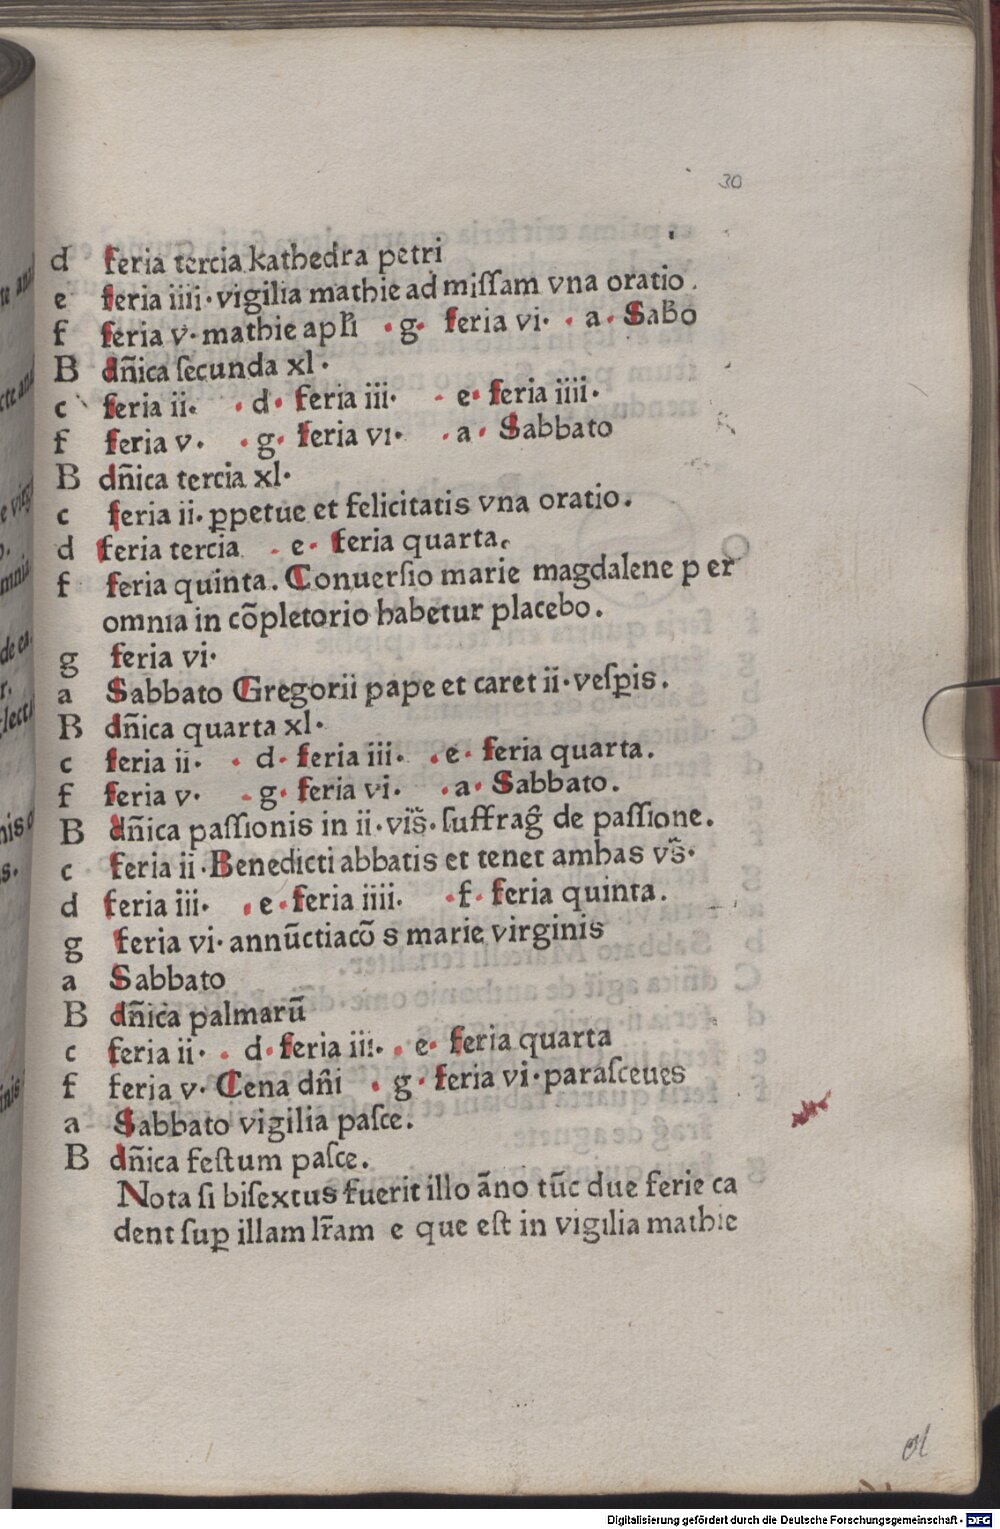 30
d feria tercia kathedra petri
e feria iiii· vigilia mathie ad miſſam vna oratio.
f feria v· mathie apłi · g· feria vi· · a· Sabƀo
B dñica ſecunda xl·
c feria ii· · d· feria iii· · e· feria iiii·
f feria v· · g· feria vi· · a· Sabbato
B dñica tercia xl·
c feria ii· ꝑpetue et felicitatis vna oratio.
d feria tercia · e· feria quarta.
f feria quinta. Conuerſio marie magdalene p er
omnia in cõpletorio habetur placebo.
g feria vi·
a Sabbato Gregorii pape et caret ii· veſꝑis.
B dñica quarta xl·
c feria ii· · d· feria iii· · e· feria quarta.
f feria v· · g· feria vi· · a· Sabbato.
B dñica paſſionis in ii· vis̃· ſuffrag̃ de paſſione.
c feria ii· Benedicti abbatis et tenet ambas vs̃·
d feria iii· · e· feria iiii· · f· feria quinta.
g feria vi· annũctiacõ s marie virginis
a Sabbato
B dñica palmarũ
c feria ii· · d· feria iii· · e· feria quarta
f feria v· Cena dñi · g· feria vi· paraſceues
a Sabbato vigilia paſce.
B dñica feſtum paſce.
Nota ſi biſextus fuerit illo ãno tũc due ferie ca
dent ſuꝑ illam lr̃am e que eſt in vigilia mathie
Digitalisierung gefördert durch die Deutsche Forschungsgemeinschaft - DFG